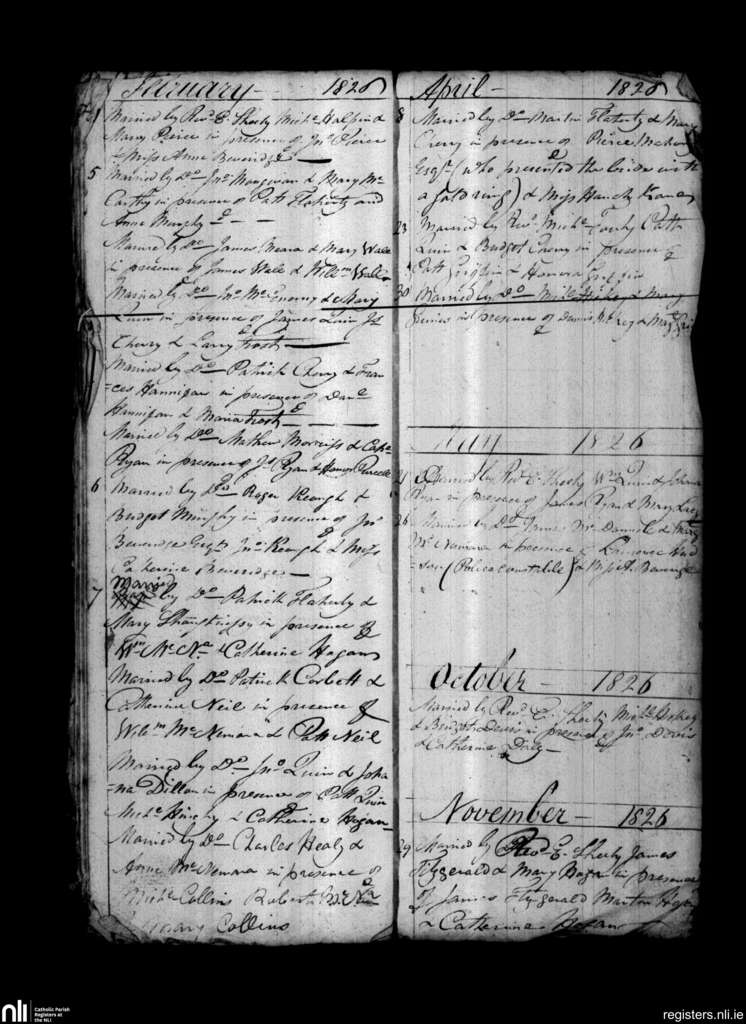 February — 1826
1 Married by Revd. E. Sheehy Michl. Halpin &
Mary Peirce in presence of Jno. Peirce
& Miss Anne Beveridge —
5 Married by Do. Jno. & Mary Mc
Carthy in presence of Patt Flaherty and
Anne Murphy —
Married by Do. James Meara & Mary Wale
in presence of James Wale & Willm. Wale
Married by Do. Jno. McInerny & Mary
Quin in presence of James Quin Jas.
Cherry & Larry Frost —
Married by Do. Patrick Cherry & Fran
=ces Hannigan in presence of Danl.
Hannigan & Maria Frost —
Married by Do. Mathew Morriss & Cathe.
Ryan in presence of Js. Ryan & Honor Purcell
6 Married by Do. Roger Keough &
Bridget Murphy in presence of Jno.
Beveridge Esqr. Jno. Keough & Miss
Catherine Beveridge —
7 Married by Do. Patrick Flaherty &
Mary in presence of
Wm. McNa. & Catherine Hogan
Married by Do. Patrick Corbett &
Catherine Neil in presence of
Willm. McNemara & Patt Neil
Married by Do. Jno. Quin & Joha
=na Dillon in presence of Patt Quin
Michl. & Catherine Hogan
Married by Do. Charles Healy &
Anne McNemara in presence of
Michl. Collins Robert
Collins
April — 1826
8 Married by Do. Martin Flaherty & Mary
Cherry in presence of Pierce
Esqr. (who presented the bride with
a gold ring) & Miss
23 Married by Revd. Michl. Patt
Quin & Bridget Cherry in presence of
Patt Griffin & Honora Griffin
30 Married by Do. Michl. Hickey & Mary
in presence of Dennis &
May 1826
21 Married by Revd. E. Sheehy Wm. Quin & Johana
Ryan in presence of James Ryan & Mary
26 Married by Do. McDaniel & Mary
McNamara in presence of Laurence
(Police constible) &
October — 1826
Married by Revd. E. Sheehy Michl. Hickey
& Bridget in presence of Jno.
& Catherine Daly —
November — 1826
29 Married by Revd. E. Sheehy James
Fitzgerald & Mary Hogan in presence
of James Fitzgerald Martin Hogan
& Catherine Hogan
nli
Catholic Parish
Registers at
the NLI
registers.nli.ie